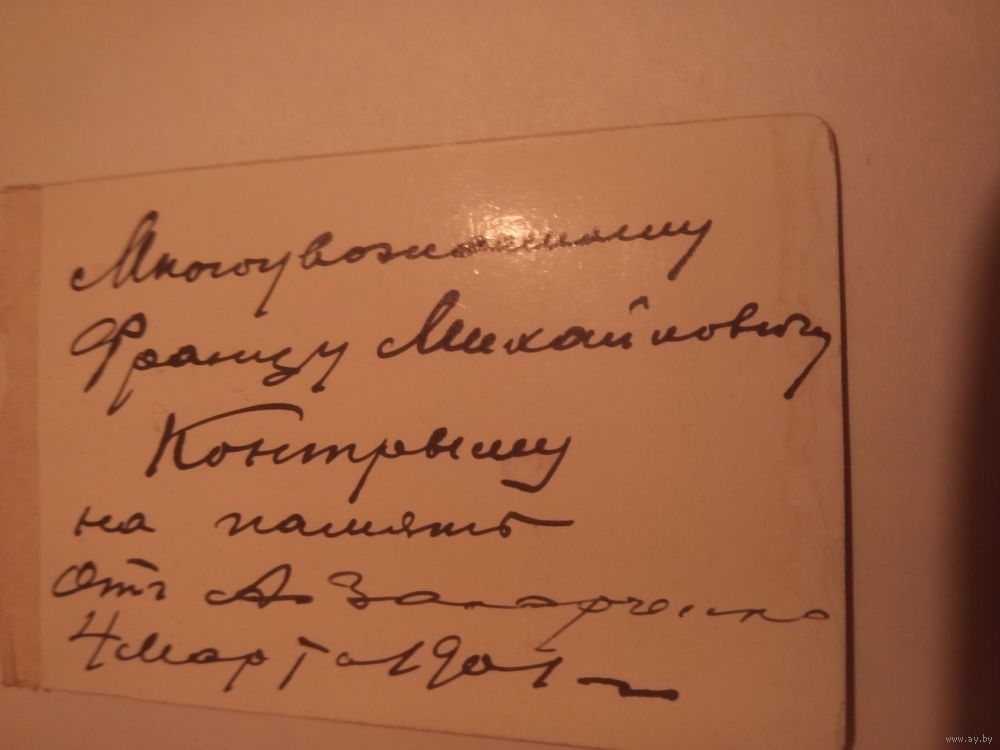 Многоуважаемому
Францу Михайловичу
Контрыму
на память
Отъ А.
4 Марта 1901
www.ay.by